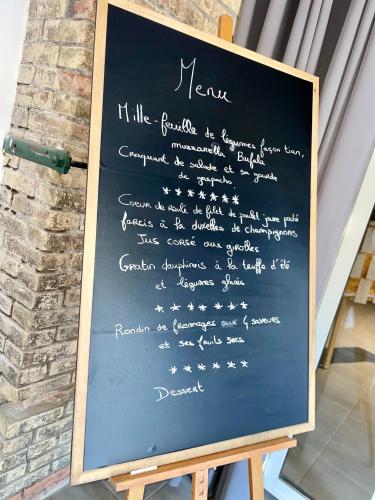 Menu
Mille-feuille de légumes façon tian,
muzzarella Bufala
Craquant de salade et sa gourde
de gaspacho.
*******
Coeur de roulé de filet de poulet jaune poché
farcis à la duxelles de champignons
Jus corsé aux girolles
Gratin dauphinois à la truffe d'été
et légumes glacés
******
Rondin de fromages aux 4 saveurs
et ses fruits secs
******
Dessert